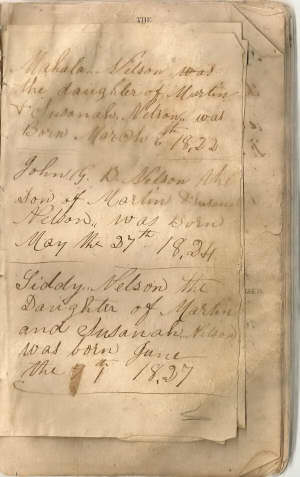 THE
Mahala Nelson was
the daughter of Martin
& Susanah Nelson was
Born March 6th 1822
John G. B Nelson the
son of Martin &
Nelson, was Born
May the 27th 18,24
Siddy Nelson the
Daughter of Martin
and Susanah Nelson
was born June
the 7th 18,27